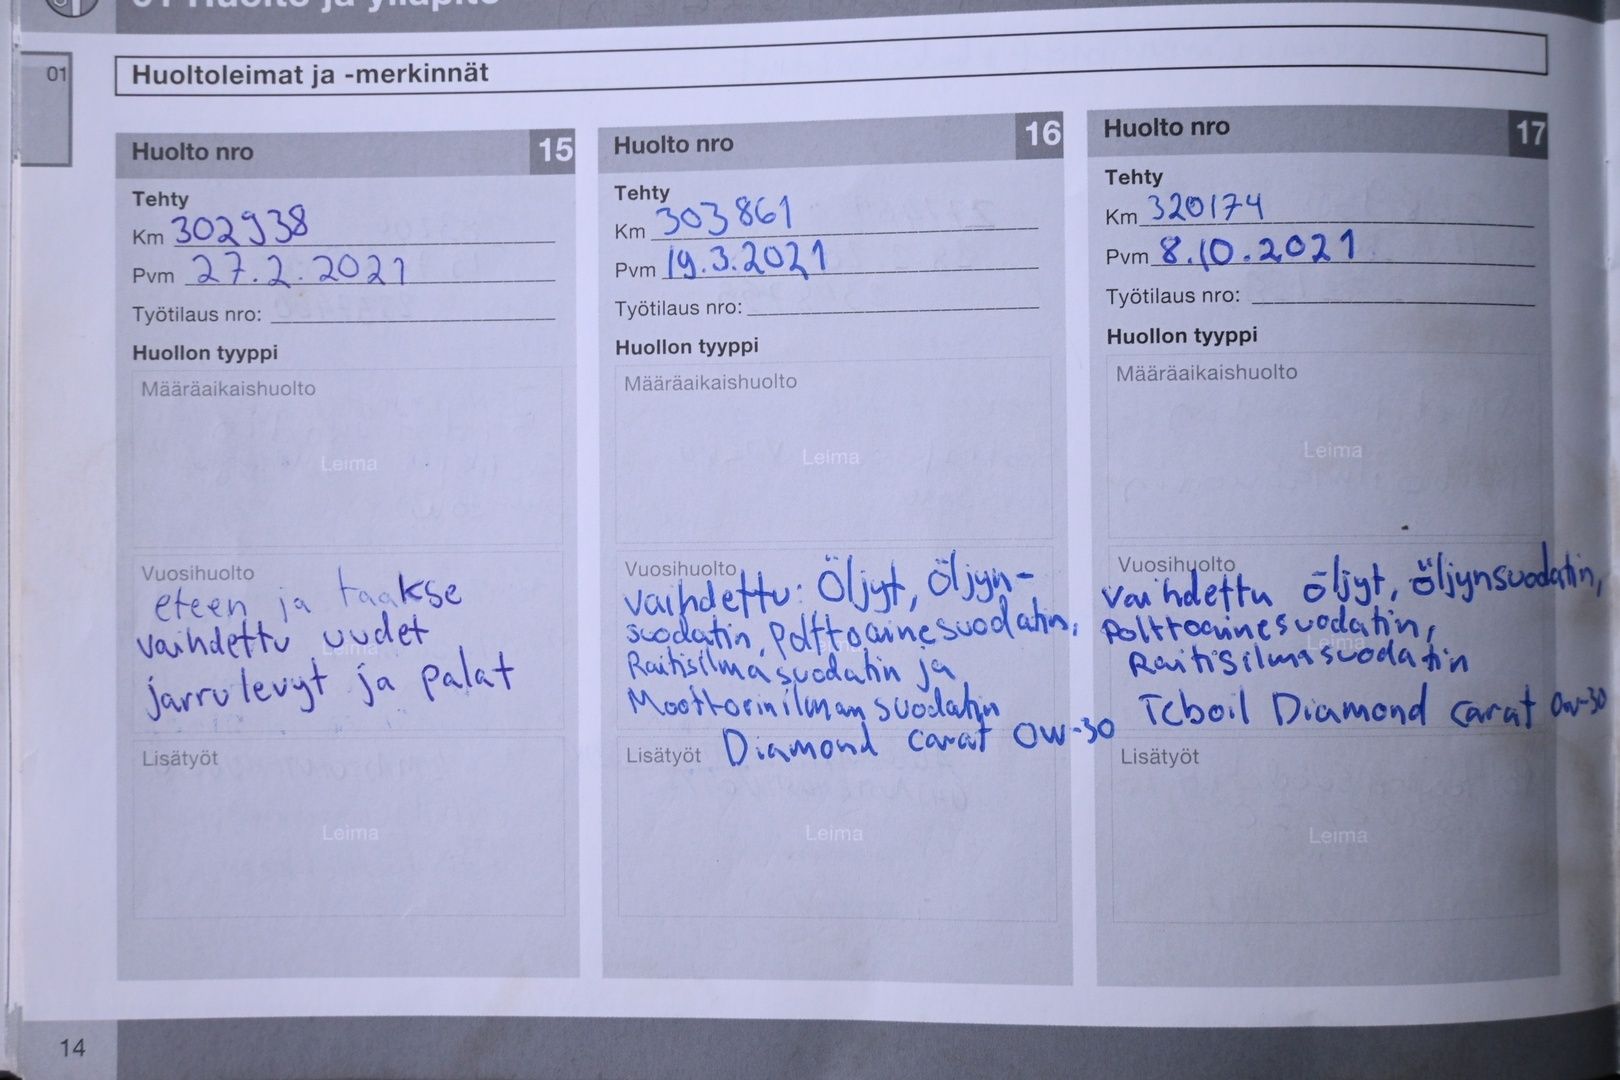 01 Huolto ja ylläpito
01
Huoltoleimat ja -merkinnät
Huolto nro 15
Tehty
Km 302938
Pvm 27.2.2021
Työtilaus nro:
Huollon tyyppi
Määräaikaishuolto
Leima
Vuosihuolto
eteen ja taakse
vaihdettu uudet
Leima
jarrulevyt ja palat
Lisätyöt
Leima
Huolto nro 16
Tehty
Km 303861
Pvm 19.3.2021
Työtilaus nro:
Huollon tyyppi
Määräaikaishuolto
Leima
Vuosihuolto
vaihdettu: Öljyt, öljyn-
suodatin, polttoainesuodatin,
Leima
Raitisilmasuodatin ja
Moottorinilman suodatin
Lisätyöt Diamond carat 0w-30
Leima
Huolto nro 17
Tehty
Km 320174
Pvm 8.10.2021
Työtilaus nro:
Huollon tyyppi
Määräaikaishuolto
Leima
Vuosihuolto
vaihdettu öljyt, öljynsuodatin,
Polttoainesuodatin,
Leima
Raitisilmasuodatin
Teboil Diamond carat 0w-30
Lisätyöt
Leima
14